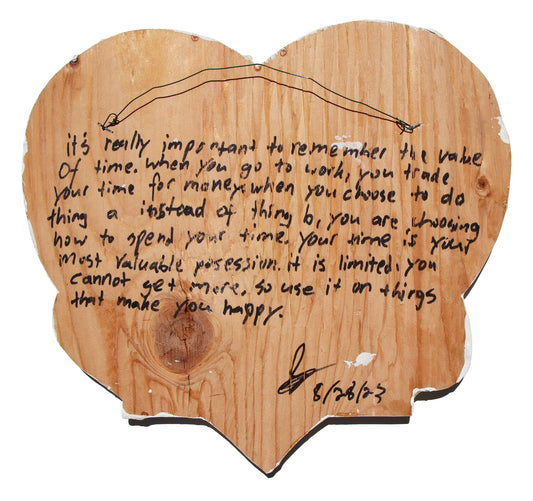 it's really important to remember the value
of time. when you go to work, you trade
your time for money. when you choose to do
thing a instead of thing b, you are choosing
how to spend your time. your time is your
most valuable posession. it is limited. you
cannot get more. so use it on things
that make you happy.
8/28/23